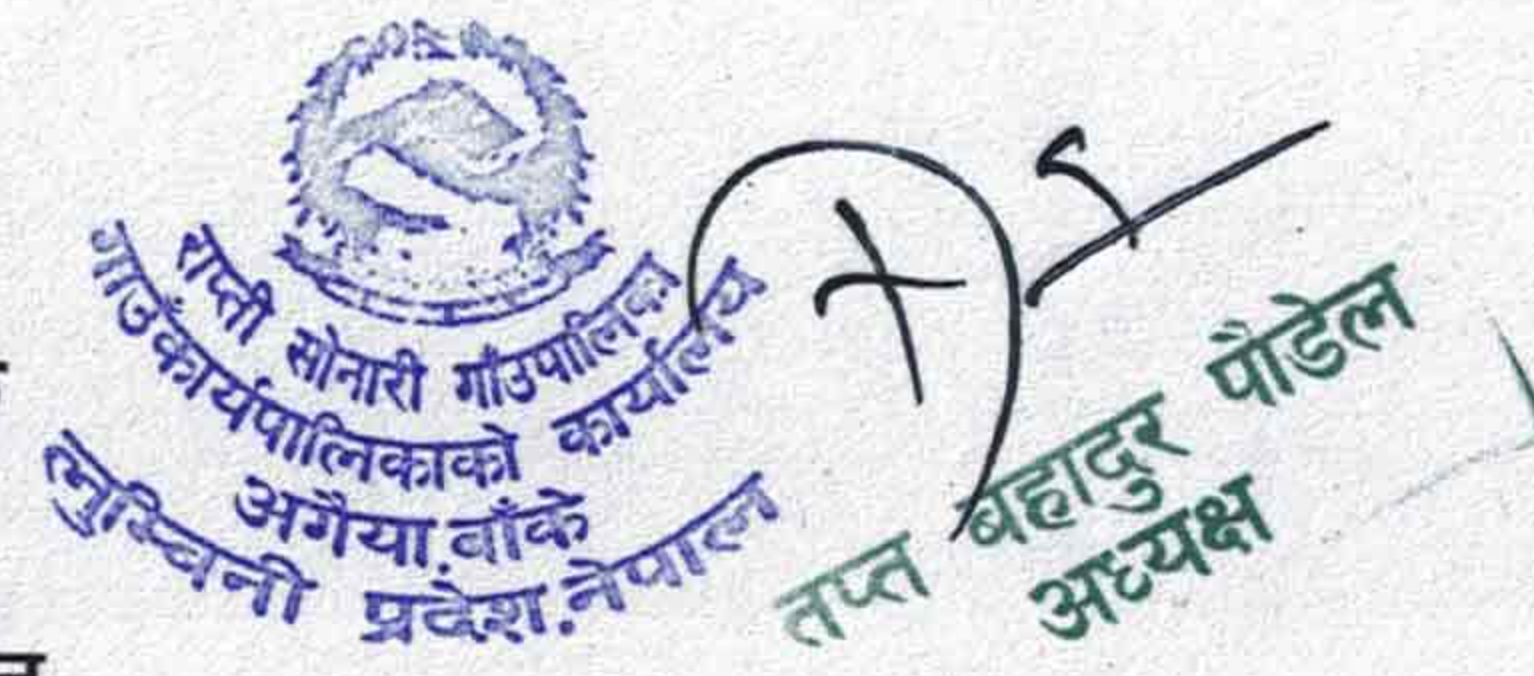 राप्ती सोनारी गाँउपालिका
गाउँकार्यपालिकाको कार्यालय
अगैया, बाँके
लुम्बिनी प्रदेश, नेपाल
तप्त बहादुर पौडेल
अध्यक्ष